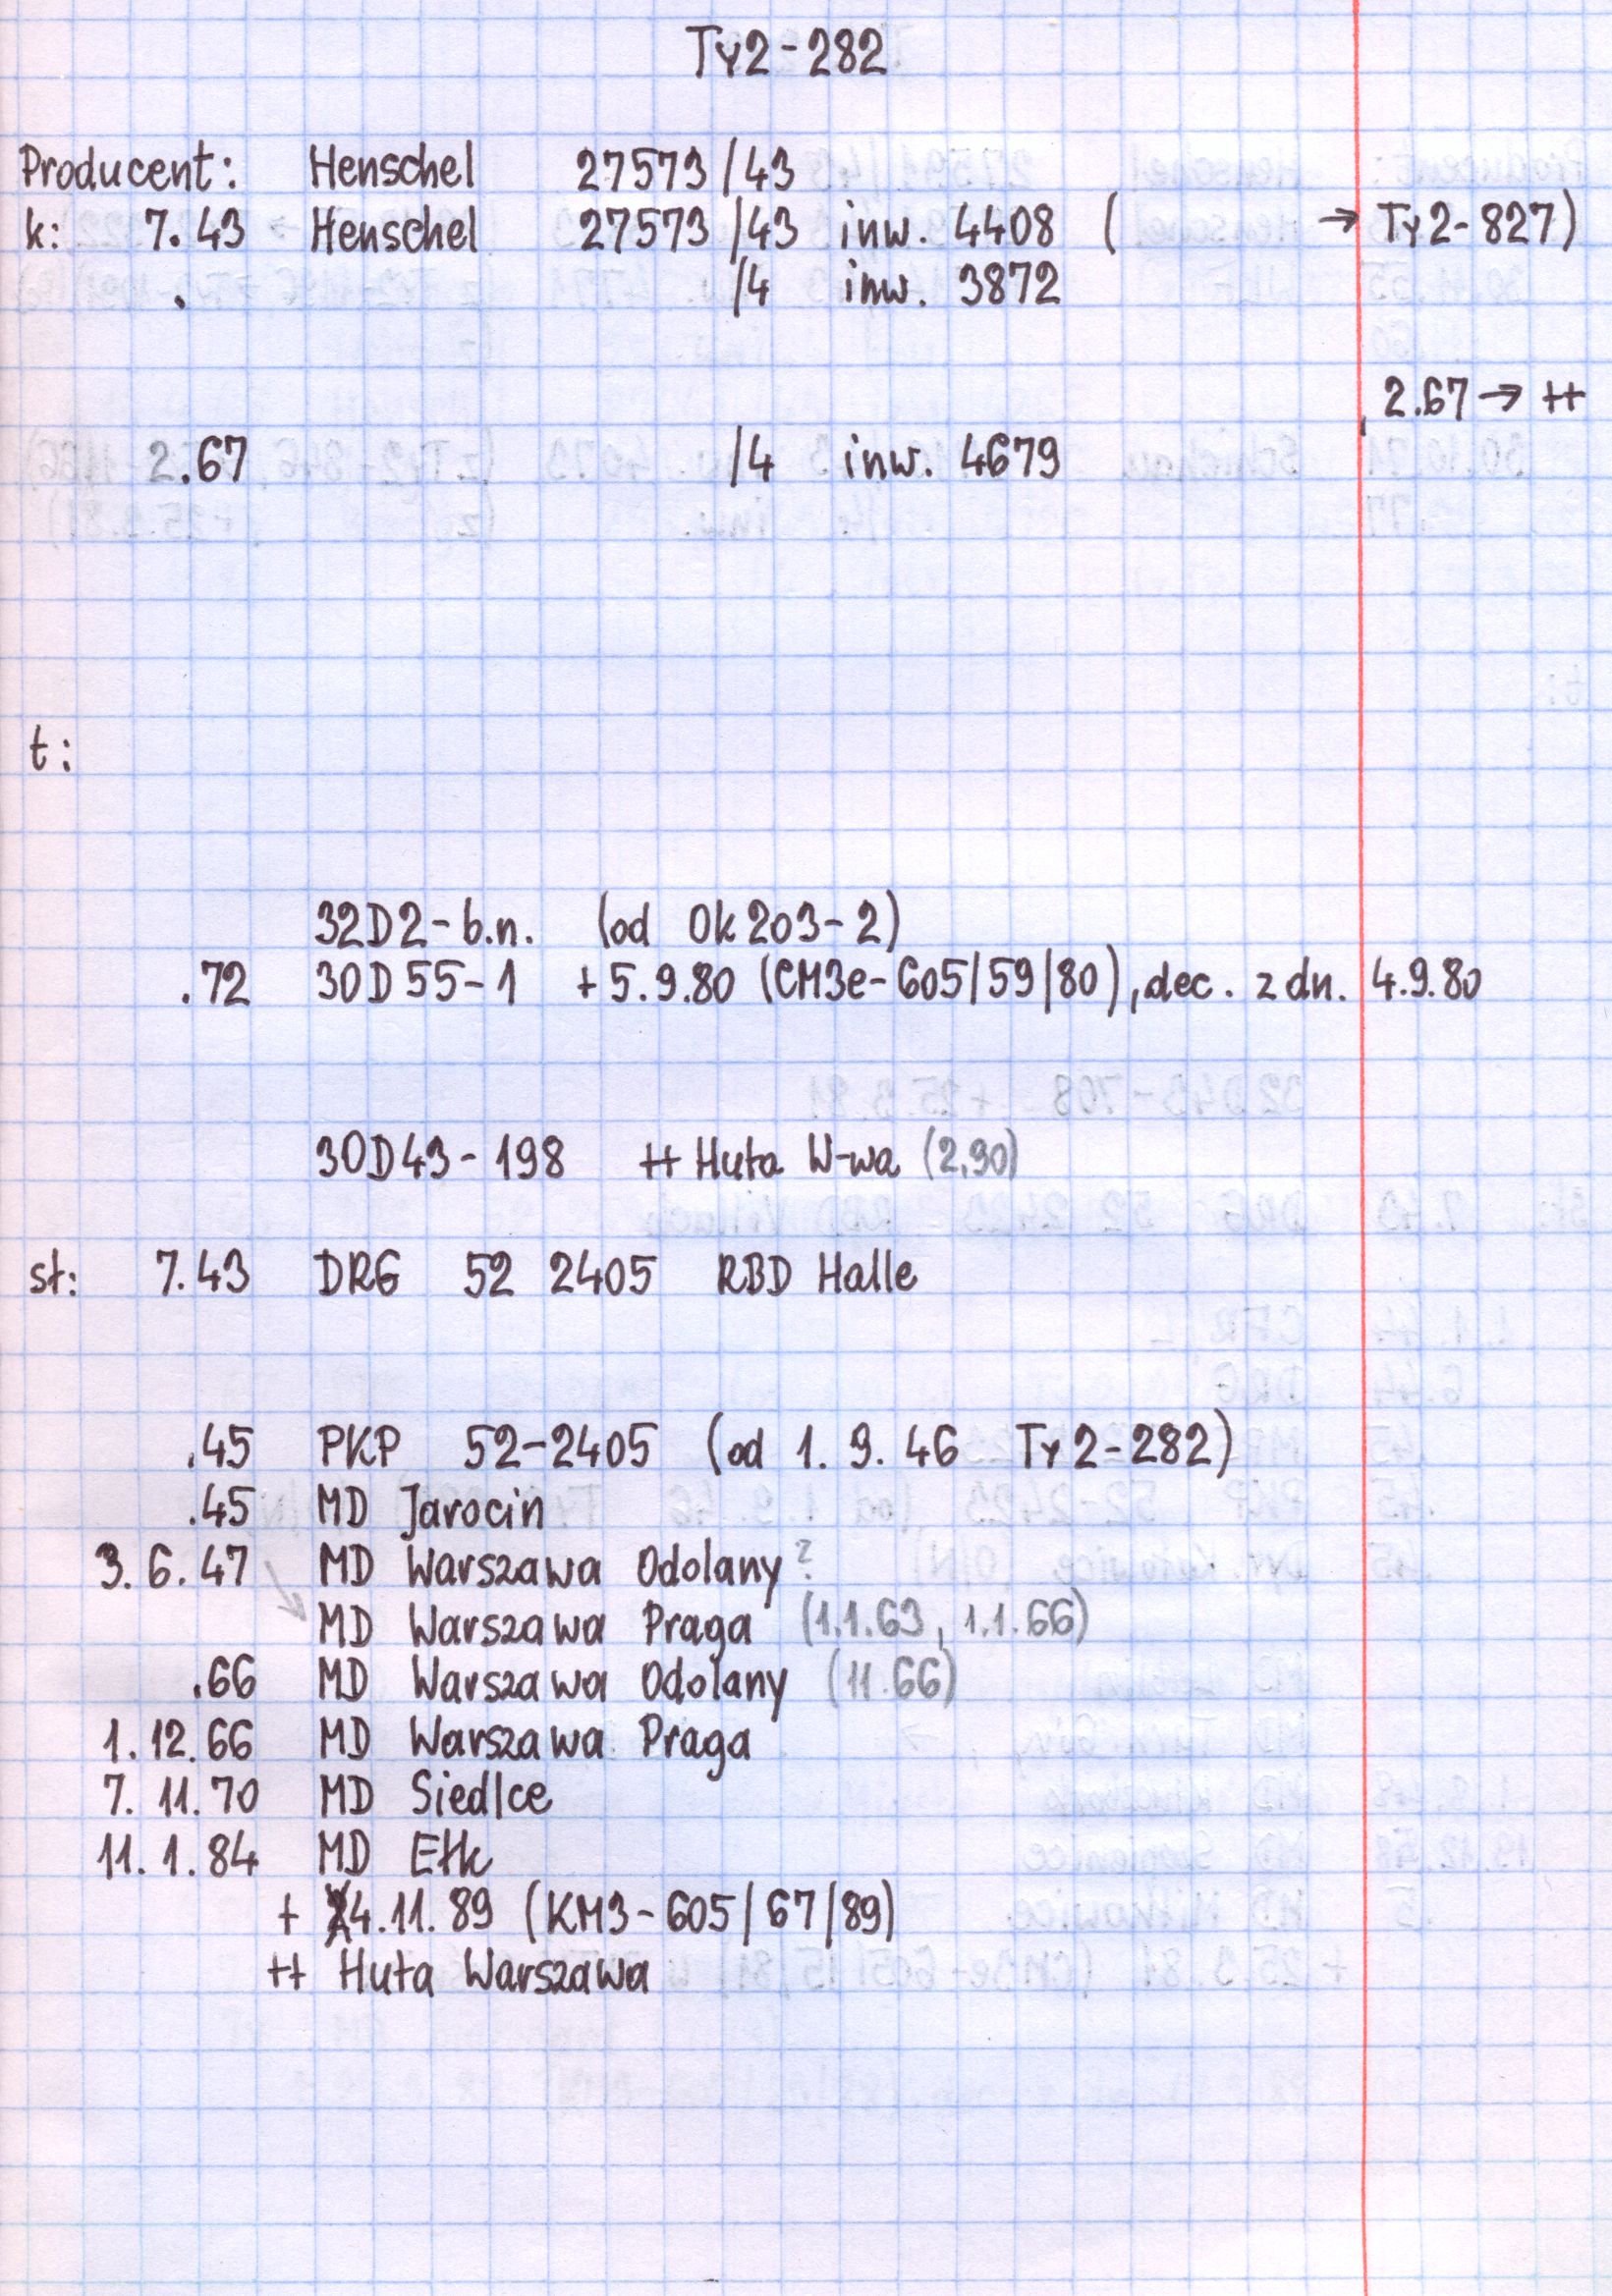 Ty2-282
Producent: Henschel 27573/43
k: 7.43 Henschel 27573/43 inw. 4408 ( → Ty2-827)
. /4 inw. 3872
2.67 → ++
2.67 /4 inw. 4679
t:
32D2-b.n. (od Ok203-2)
.72 30D55-1 +5.9.80 (CM3e-605/59/80), dec. z dn. 4.9.80
30D43-198 ++ Huta W-wa (2,90)
st: 7.43 DRG 52 2405 RBD Halle
.45 PKP 52-2405 (od 1.9.46 Ty2-282)
.45 MD Jarocin
3.6.47 MD Warszawa Odolany?
MD Warszawa Praga (1.1.63, 1.1.66)
.66 MD Warszawa Odolany (11.66)
1.12.66 MD Warszawa Praga
7.11.70 MD Siedlce
11.1.84 MD Ełk
+ 24.11.89 (KM3-605/67/89)
++ Huta Warszawa